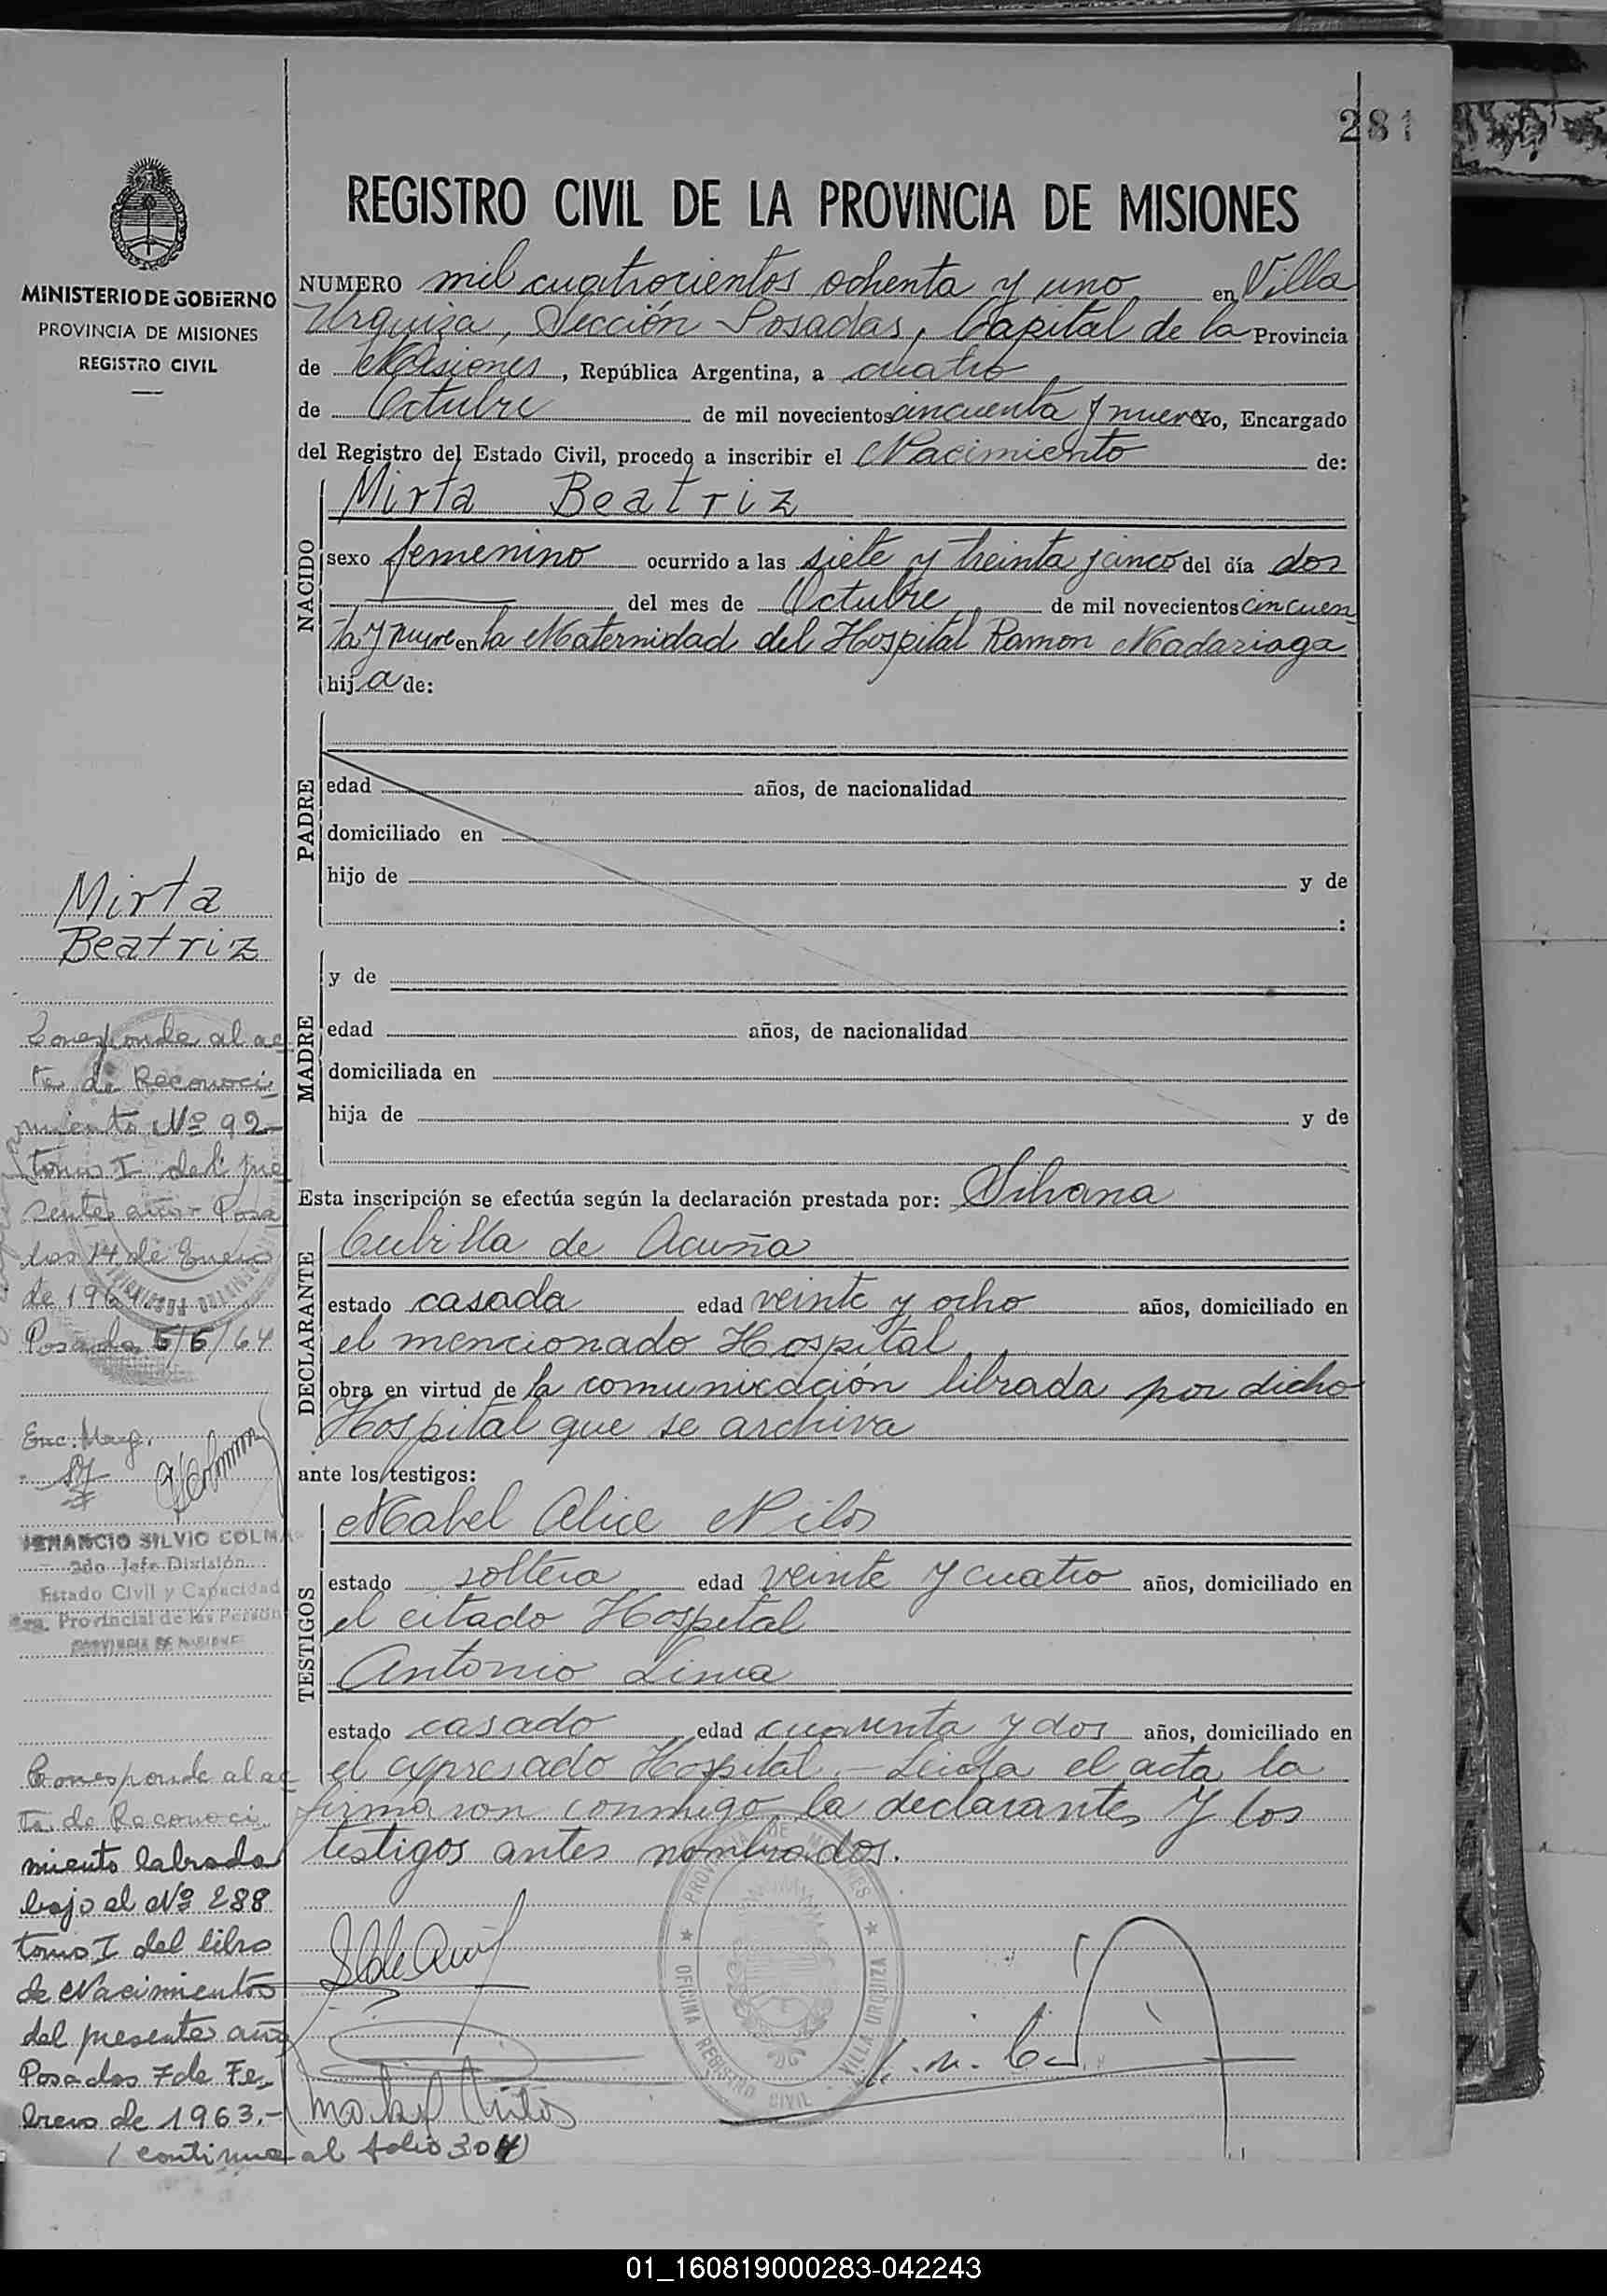 281
REGISTRO CIVIL DE LA PROVINCIA DE MISIONES
MINISTERIO DE GOBIERNO
PROVINCIA DE MISIONES
REGISTRO CIVIL
NUMERO mil cuatrocientos ochenta y uno en Villa
Urquiza, Sección Posadas, Capital de la Provincia
de Misiones, República Argentina, a cuatro
de Octubre de mil novecientos cincuenta y nueve yo, Encargado
del Registro del Estado Civil, procedo a inscribir el Nacimiento de:
NACIDO
Mirta Beatriz
sexo femenino ocurrido a las siete y treinta y cinco del día dos
del mes de Octubre de mil novecientos cincuen
ta y nueve en la Maternidad del Hospital Ramon Madariaga
hija de:
PADRE
edad años, de nacionalidad
domiciliado en
hijo de y de
:
MADRE
y de
edad años, de nacionalidad
domiciliada en
hija de y de
Esta inscripción se efectúa según la declaración prestada por: Silvana
DECLARANTE
Cubilla de Acuña
estado casada edad veinte y ocho años, domiciliado en
el mencionado Hospital
obra en virtud de la comunicación librada por dicho
Hospital que se archiva
ante los testigos:
TESTIGOS
Mabel Alice
estado soltera edad veinte y cuatro años, domiciliado en
el citado Hospital
Antonio Lima
estado casado edad cuarenta y dos años, domiciliado en
el expresado Hospital.- Leida el acta la
firmaron conmigo la declarante y los
testigos antes nombrados.
PROVINCIA DE MISIONES
OFICINA REGISTRO CIVIL VILLA URQUIZA
Mirta
Beatriz
Corresponde al ac
ta de Reconoci
miento Nº 92-
tomo I del pre
sente año- Posa
das 14 de Enero
de 1964
Posadas 5/5/64
Enc. Marg.
VENANCIO SILVIO COLMA
2do Jefe División
Estado Civil y Capacidad
Provincial de las Person
PROVINCIA DE MISIONES
Corresponde al ac
ta de Reconoci
miento labrado
bajo el Nº 288
tomo I del libro
de Nacimientos
del presente año
Posadas 7 de Fe
brero de 1963.-
(continua al folio 304)
01_160819000283-042243